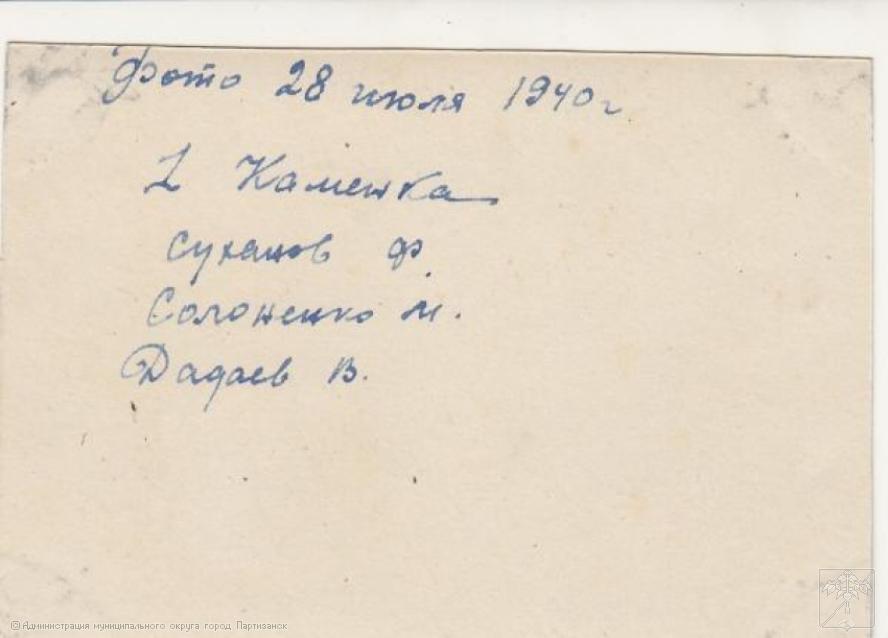 Фото 28 июля 1940 г
1 Каменка
Суханов Ф.
Солоненко М.
Дадаев В.
© Администрация муниципального округа город Партизанск